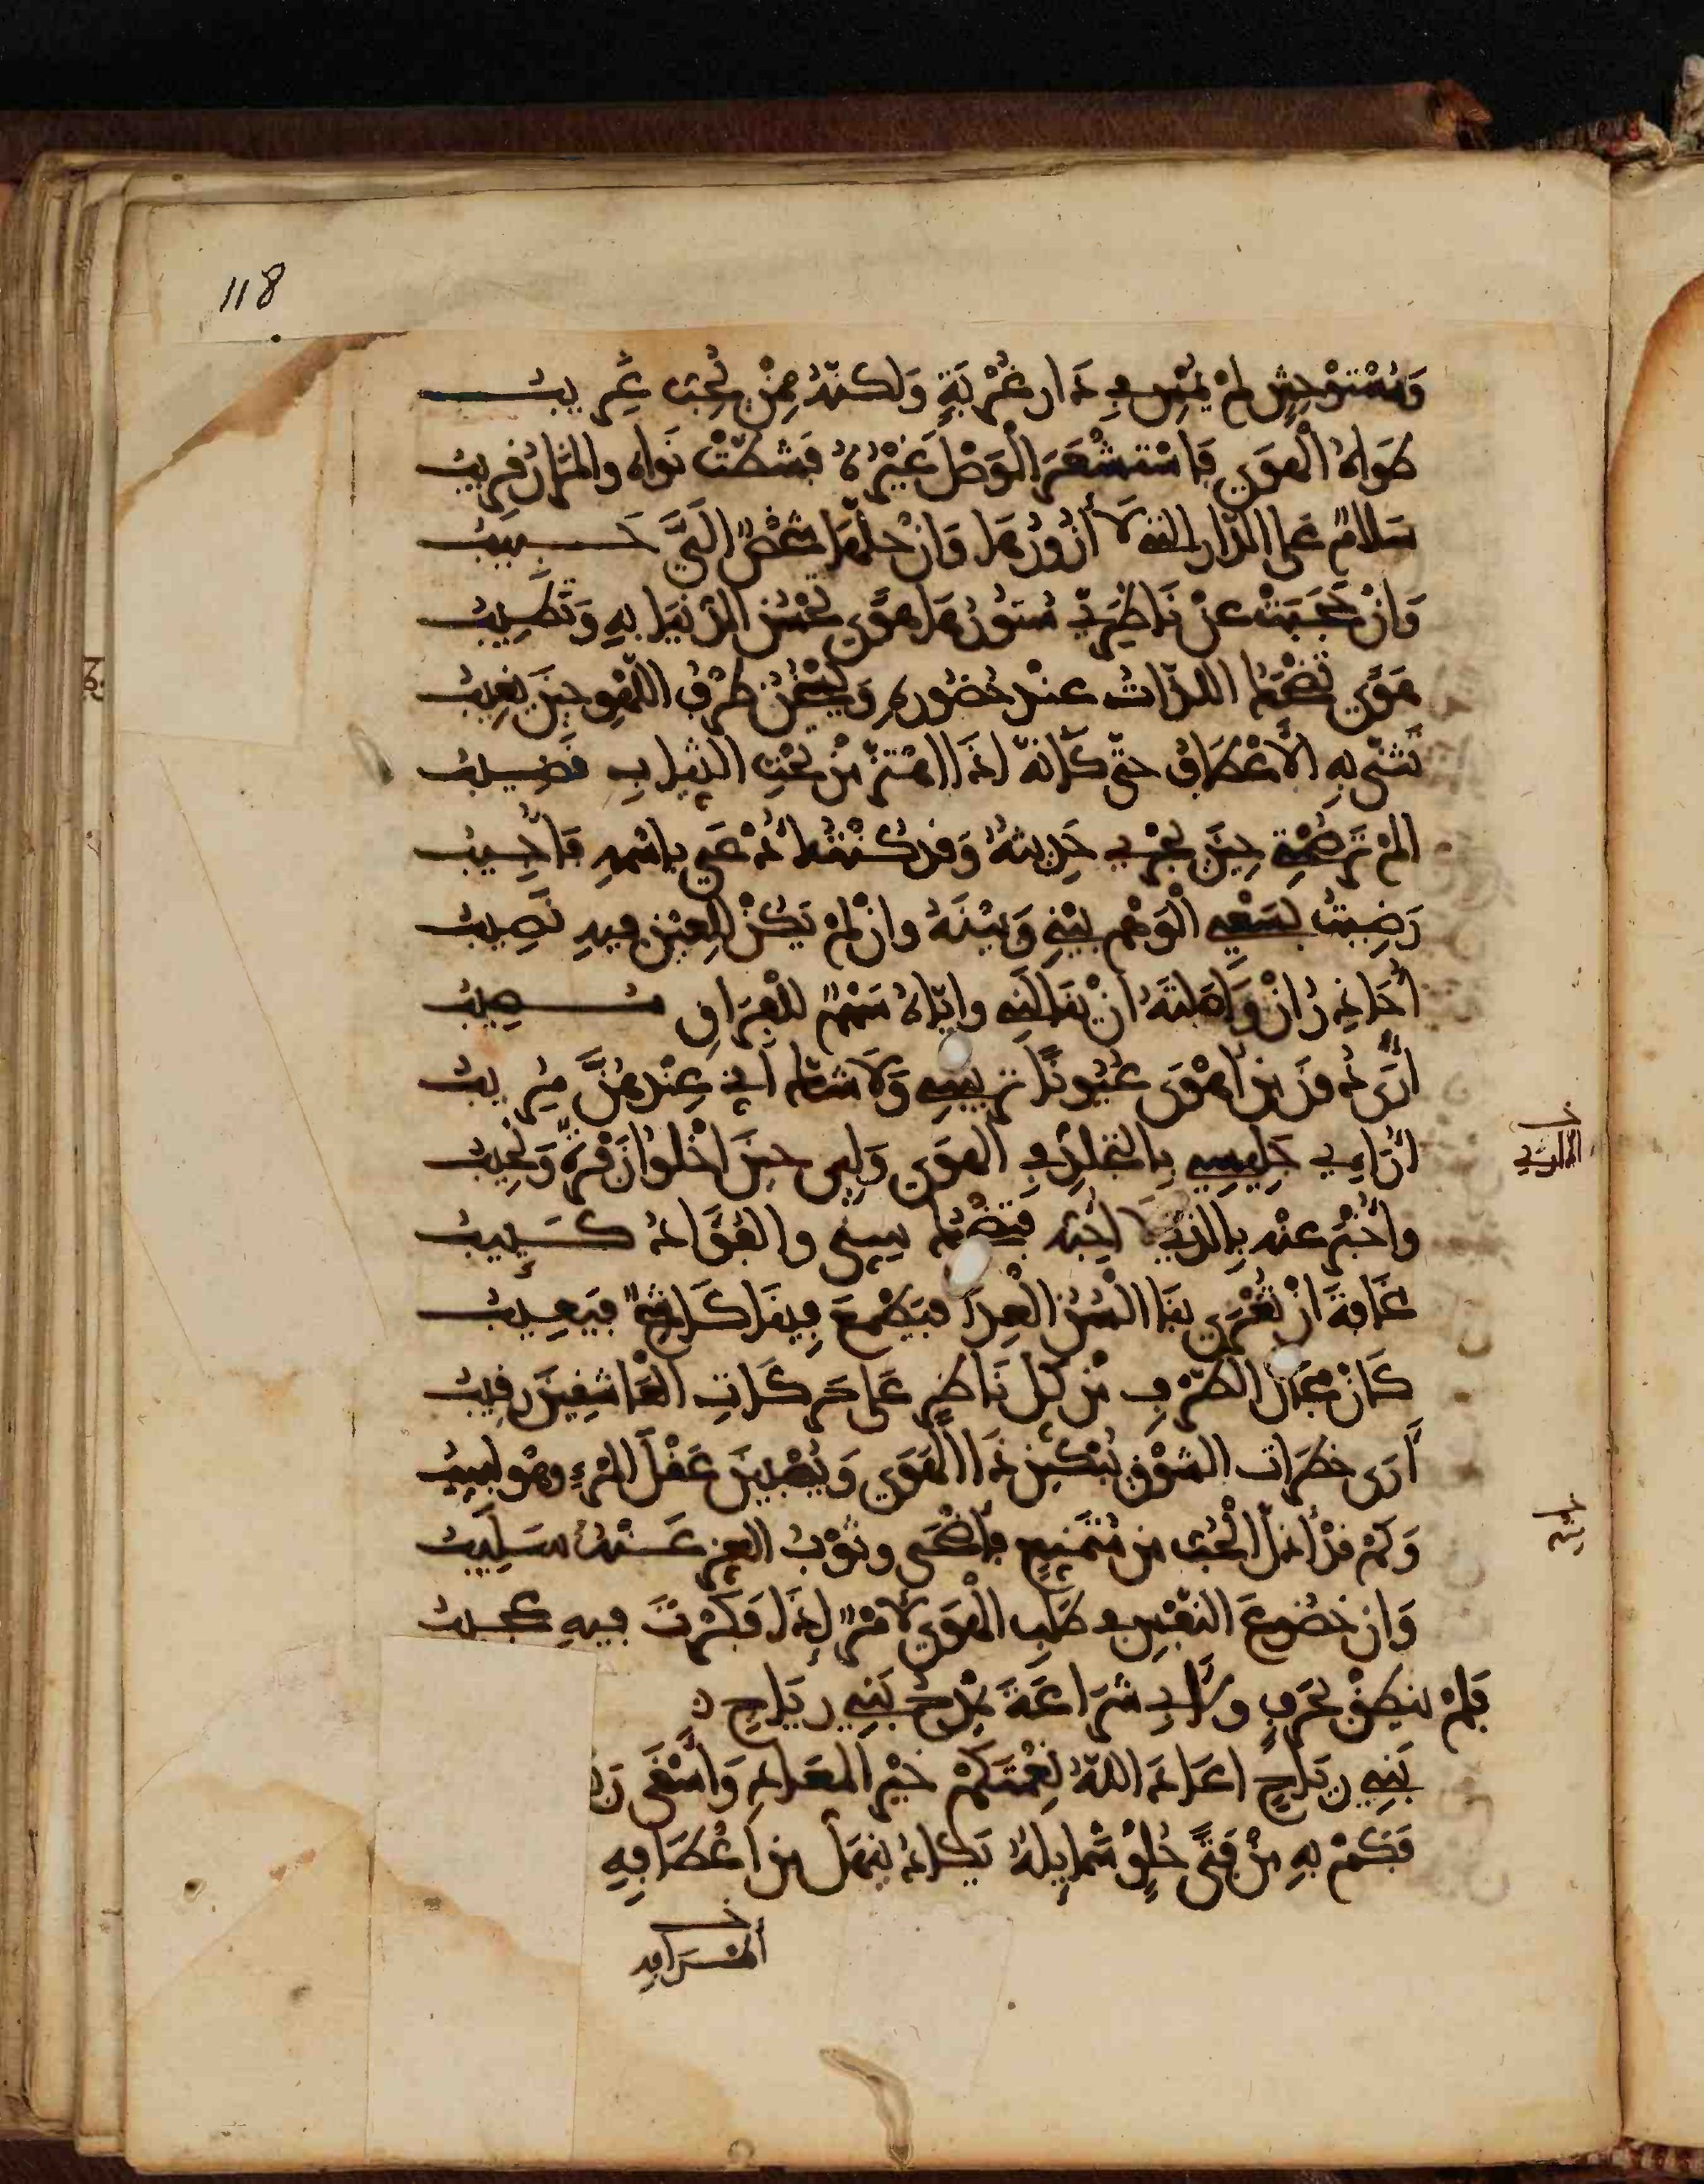 118
وَمُسْتَوْحِشٍ لمْ يُمْسِ في دَارِ غُرْبَةٍ وَلكنّهُ مِمّنْ يُحِبُّ غَرِيبُ
طَوَاهُ الْهَوَى فَاسْتَشْعَرَ الْوَصْلَ غَيْرُهُ فَشَطّتْ نَوَاه والمَزَارُ قرِيبُ
سَلامٌ عَلى الدّارِ التي لَا أَزُورُهَا وَانْ حَلّهَا شَخْصٌ الَيَّ حَبِيبُ
وَانْ حَجَبَتْ عنْ نَاظِرَيّ سُتُورُهَا هَوًى تَحْسُنُ الدّنْيَا بهِ وَتَطِيبُ
هَوًى تَضْحَكُ اللذّاتُ عندَ حُضُورِهِ وَيَسْخَنُ طَرْفُ اللّهْوِ حِينَ يَغِيبُ
تَثَنّى بهِ الأَعْطَافُ حتّى كَأَنّهُ اذَا اهْتَزّ مِنْ تَحْتِ الثيابِ قَضِيبُ
المْ تَرَ صَمْتِي حِينَ يَجْرِي حَدِيثُهُ وَقد كُنْتُ أُدْعَى باسْمِهِ فَأُجِيبُ
رَضِيتُ بِسَعْيِ الْوَهْمِ بَيْنِي وَبَيْنَهُ وانْ لمْ يَكُنْ لِلعَيْنِ فيهِ نَصِيبُ
أُحَاذِرُ انْ وَاصَلتُهُ انْ يَنَالَنِي وايّاهُ سَهْمٌ للْفِرَاقِ مُصِيبُ
أَرَى دُونَ من أَهْوَى عُيُونًا تَرِيبُنِي وَلَا شكّ أَنّي عِنْدَهُنّ مُرِيبُ
أُدَارِي جَلِيسِي بِالتَجَلّدِ في الهَوَى وَلِي حِينَ أَخْلُو زَفْرَةٌ وَنَحِيبُ
وأُخْبِرُ عنْه بِالذي لَا أُحِبّهُ فَيَضْحَكُ سِنّي والفُؤَادُ كَئِيبُ
مَخَافَةَ انْ تُغْرَى بنَا أَلْسُنُ الْعِدَا فَيَطْمَعَ فِينَا كَاشِحٌ فَيَعِيبُ
كَأَنّ مَجَالَ الطّرْفِ مِنْ كُلّ نَاظِرٍ عَلى حَرَكَاتِ الْعَاشِقِينَ رَقِيبُ
أَرَى خطَرَاتِ الشّوْقِ يُبْكِينَ ذَا الْهَوَى وَيُصْبِينَ عَقْلَ المَرْءِ وهْوَ لَبِيبُ
وَكمْ قدْ أَذلّ الْحُبّ من مُتَمنّعٍ فأَضْحَى وثَوْبُ العِزّ عَنْهُ سَلِيبُ
وَانّ خُضُوعَ النفْسِ في طَلَبِ الْهَوَى لَأَمْرٌ إِذَا فَكّرْتَ فيهِ عَجِيبُ
فَلمْ يَنطِقْ بحَرْفٍ ولأَبي شُرَاعَةَ يَمْدَحُ بَنِي رِيَاحٍ
بَنِي رِيَاحٍ اعَادَ اللّهُ نِعْمَتَكُمْ خَيْرَ المعَادِ وَأَسْقَى
فَكَمْ بهِ مِنْ فَتًى حُلْوٍ شَمَايِلُهُ يَكادُ يَنهَلّ من أَعْطَافِهِ